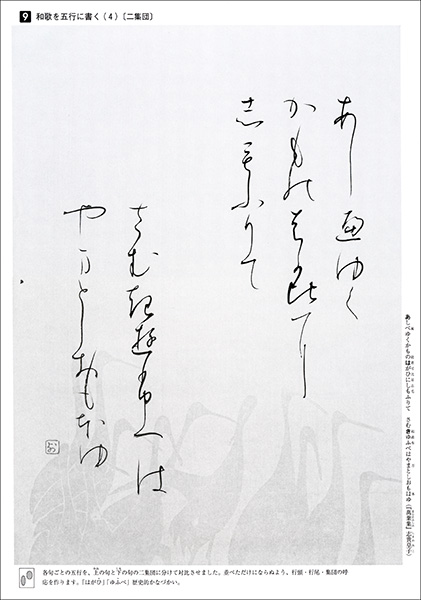 9 和歌を五行に書く(4)〔二集団〕
あし遍ゆく
かもの者可比に
志もふりて
さむ起遊ふへは
やまとしおもほゆ
あしべゆくかものはがひにしもふりて さむきゆふべはやまとしおもほゆ(『萬葉集』志貴皇子)
各句ごとの五行を、上の句と下の句の二集団に分けて対比させました。並べただけにならぬよう、行頭・行尾・集団の呼
応を作ります。「はがひ」「ゆふべ」歴史的かなづかい。